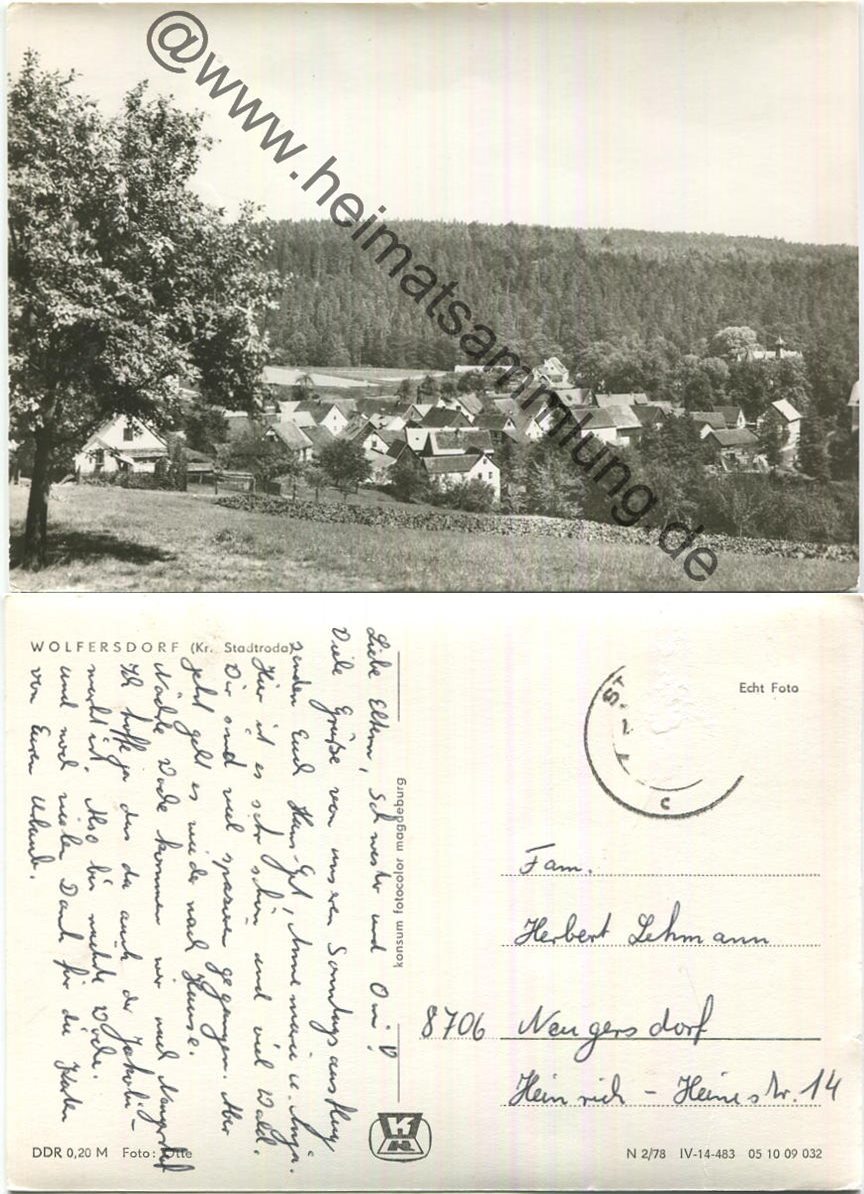 @www.heimatsammlung.de
WOLFERSDORF (Kr. Stadtroda)
Liebe Eltern, Schwester und Omi!
Viele Grüße von unseren Sonntagsausflug
senden Euch Hans-Gg., Annemarie u. Anja.
Hier ist es sehr schön und viel Wald.
Wir sind viel spazieren gegangen. Aber
jetzt geht es wieder nach Hause.
Nächste Woche kommen wir nach Neugersdorf
Ich hoffe ja das da auch der Jakobi-
markt ist. Also bis nächste Woche.
und noch vielen Dank für die Karten
von Euren Urlaub.
konsum fotocolor magdeburg
Echt Foto
ST
C
Fam.
Herbert Lehmann
8706 Neugersdorf
Heinrich-Heinestr. 14
DDR 0,20 M Foto: Otte
N 2/78 IV-14-483 05 10 09 032